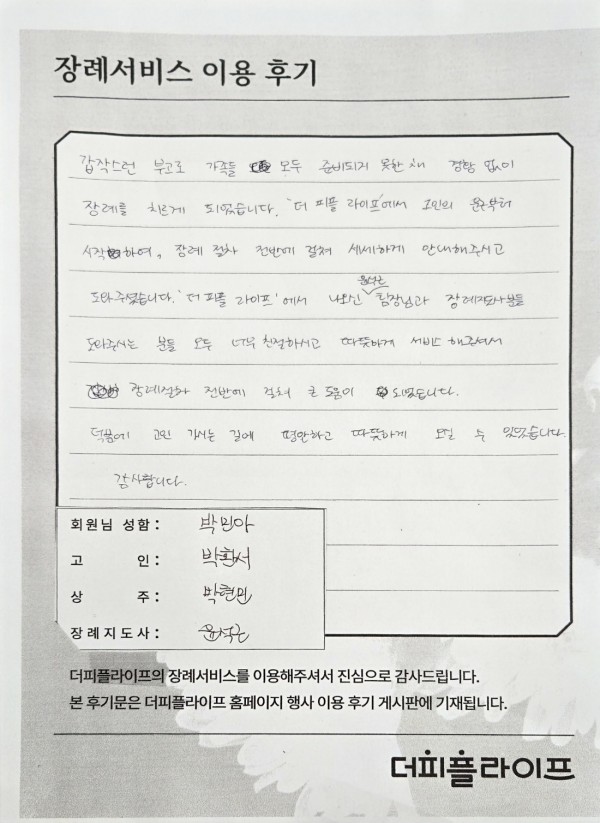 장례서비스 이용 후기
갑작스런 부고로 가족들 모두 준비되지 못한 채 경황 없이
장례를 치르게 되었습니다. '더 피플 라이프'에서 고인의 운구부터
시작하여, 장례 절차 전반에 걸쳐 세세하게 안내해주시고
도와주셨습니다. '더 피플 라이프'에서 나오신 윤석근 팀장님과 장례지도사분들
도와주시는 분들 모두 너무 친절하시고 따뜻하게 서비스 해주셔서
장례절차 전반에 걸쳐 큰 도움이 되었습니다.
덕분에 고인 가시는 길에 평안하고 따뜻하게 모실 수 있었습니다.
감사합니다.
회원님 성함 : 박민아
고 인 : 박환서
상 주 : 박현민
장례지도사 : 윤석근
더피플라이프의 장례서비스를 이용해주셔서 진심으로 감사드립니다.
본 후기문은 더피플라이프 홈페이지 행사 이용 후기 게시판에 기재됩니다.
더피플라이프